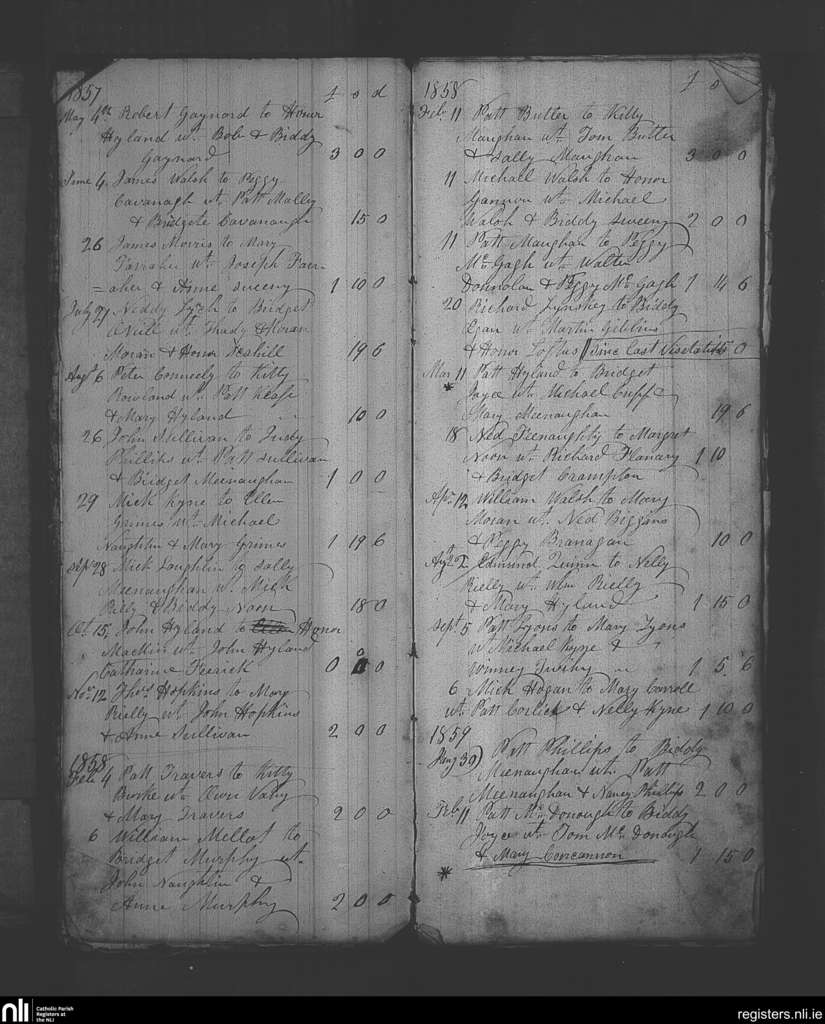 1857 £ s d
May 4th Robert Gaynord to Honor
Hyland wt. Bob & Biddy
Gaynord 3 0 0
June 4 James Walsh to Peggy
Cavanagh wt. Patt Malley
& Bridgete Cavanaugh 15 0
26 James Morris to Mary
Farraher wt. Joseph Farr
=aher & Anne Sweeny 1 10 0
July 21 Neddy Lynch to Bridget
wt. Thady Moran
Moran & Honor 19 6
Augt 6 Peter Conneely to Kitty
Rowland wt. Patt
& Mary Hyland 10 0
26 John Sullivan to Judy
Phillips wt. Patt Sullivan
& Bridget Meenaughan 1 0 0
29 Mick Kyne to Ellen
Grimes wt. Michael
Naughlin & Mary Grimes 1 19 6
Sept 28 Mick Loughlin to Sally
Meenaughan wt. Mick
Riely & Biddy Noon 18 0
Oct. 15 John Hyland to Honor
Mackin wt. John Hyland
Catharine Ferrick 0 0
Nov. 12 Thos. Hopkins to Mary
Rielly wt. John Hopkins
& Anne Sullivan 2 0 0
1858
Feb 4 Patt Travers to Kitty
Burke wt. Owen Vahy
& Mary Travers 2 0 0
6 William Mellot to
Bridget Murphy wt.
John Naughlin &
Anne Murphy 2 0 0
1858 £ s
Feb. 11 Patt Butler to Kitty
Maughan wt. Tom Butler
& Sally Maughan 3 0 0
11 Michall Walsh to Honor
Gannon wt. Michael
Walsh & Biddy Sweeny 2 0 0
11 Patt Maughan to Peggy
Mc Gagh wt. Walter
Donnolan & Peggy Mc Gagh 1 14 6
20 Richard Lynskey to Biddy
wt. Martin Gibbins
& Honor Loftus Sine Last Visitation 15 0
Mar. 11 Patt Hyland to Bridget
* Joyce wt. Michael Cuffe
Mary Meenaughan 19 6
18 Ned Feenaughty to Margret
Noon wt. Richard Flanary 1 10
& Bridget Crampton
Apr. 12 William Walsh to Mary
Moran wt. Ned Biggins
& Peggy Branagan 10 0
Augt 22 Edmund Quinn to Nelly
Rielly wt. Wlm Rielly
& Mary Hyland 1 15 0
Sept. 5 Patt Lyons to Mary Lyons
w. Michael Kyne &
Winney 1 5 6
6 Mick Hogan to Mary Carroll
wt. Patt Corlick & Nelly Kyne 1 10 0
1859
Jany 30 Patt Phillips to Biddy
Meenaughan wt. Patt
Meenaughan & Nancy Phillips 2 0 0
Feb. 11 Patt Mc Donough to Biddy
Joyce wt. Tom Mc Donough
& Mary Concannon 1 15 0
*
nli Catholic Parish
Registers at
the NLI
registers.nli.ie